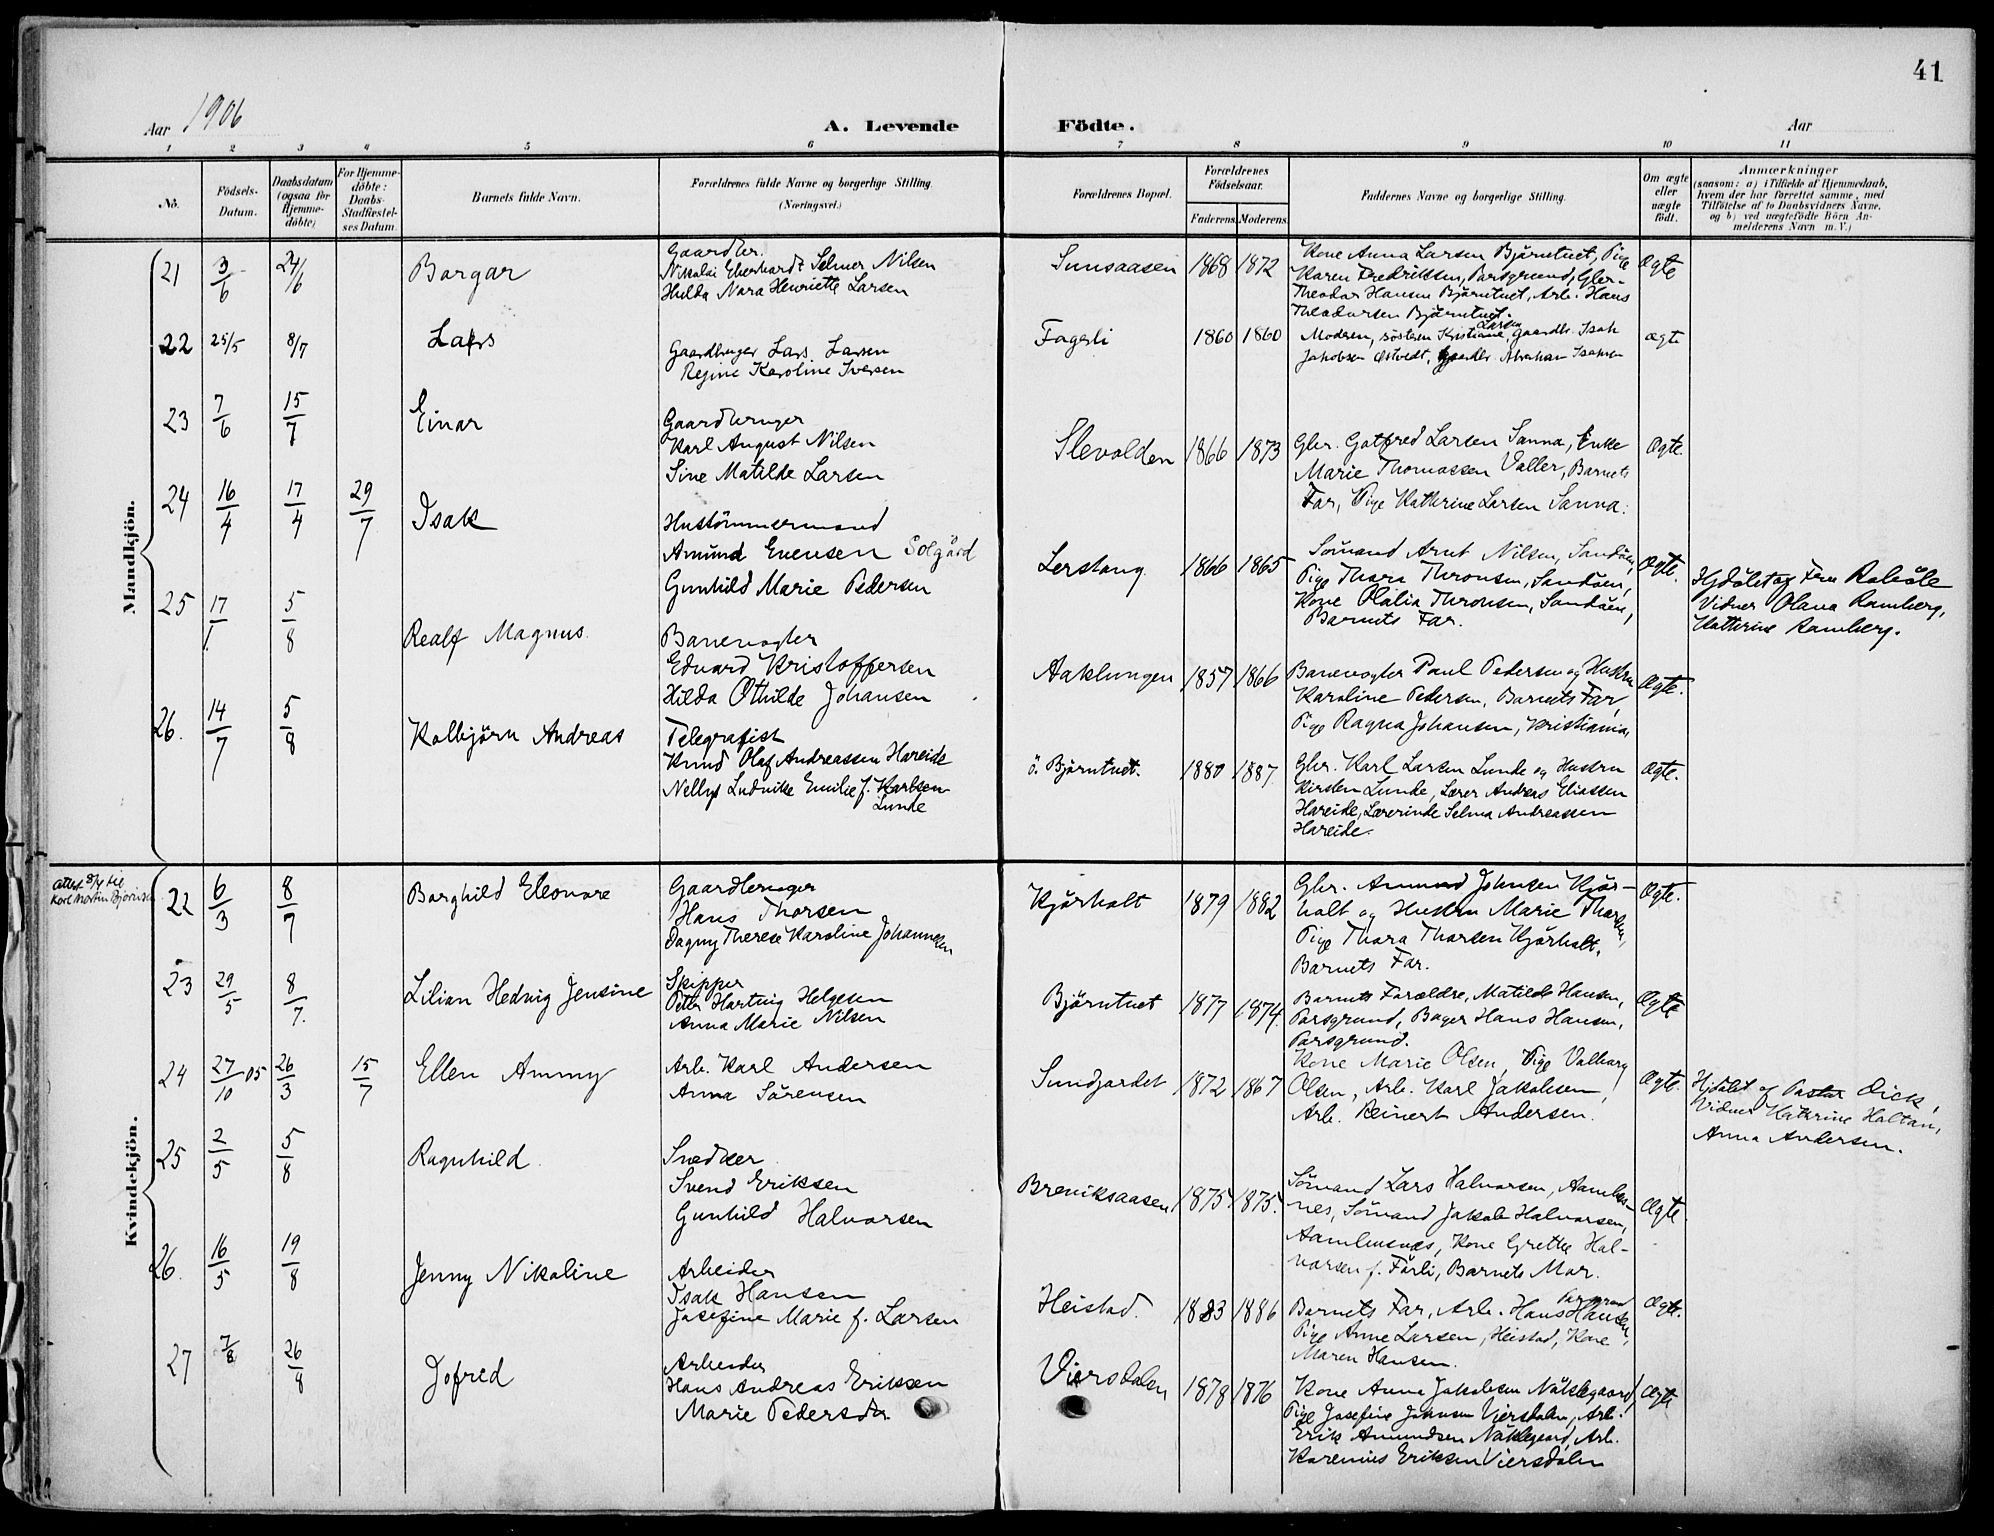 41
Aar 1906
A. Levende Födte.
Aar
1 2 3 4 5 6 7 8 9 10 11
No.
Födsels-
Datum.
Daabsdatum
(ogsaa for
Hjemme-
döbte)
For Hjemme-
döbte:
Daabs-
Stadfæstel-
ses Datum.
Barnets fulde Navn.
Forældrenes fulde Navne og borgerlige Stilling.
(Næringsvei.)
Forældrenes Bopæl.
Forældrenes
Födselsaar.
Faderens. Moderens.
Faddernes Navne og borgerlige Stilling.
Om ægte
eller
uægte
födt.
Anmærkninger
(saasom: a) i Tilfælde af Hjemmedaab,
hvem der har forrettet samme, med
Tilföielse af to Daabsvidners Navne,
og b) ved uægtefödte Börn An-
melderens Navn m. V.)
Mandkjön.
21 3/6 24/6 Borgar
Gaardbr.
Nikolai Eberhardt Selmer Nilsen
Hulda Nora Henriette Larsen
Sunsaasen 1868 1872
Kone Anna Larsen Björntvet, Pige
Karen Fredriksen, Porsgrund, Gbr.
Theodor Hansen Björntvet, Arb. Hans
Theodorsen Björntvet.
Ægte
22 25/5 8/7 Lars
Gaardbruger Lars Larsen
Regine Karoline Iversen
Fagerli 1860 1860
Larsen
Moderen, söstern Kristiane, Gaardbr. Isak
Jakobsen Östvedt, Gaardbr. Abraham Isaksen
ægte
23 7/6 15/7 Einar
Gaardbruger
Karl August Nilsen
Sine Matilde Larsen
Slevolden 1866 1873
Gbr. Gotfred Larsen Sanna, Enke
Marie Thomassen Valler, Barnets
Far, Pige Kathrine Larsen Sanna.
Ægte.
24 16/4 17/4 29/7 Isak
Hustömmermand
Amund Evensen Solgård
Gunhild Marie Pedersen
Lerstang. 1866 1865
Sömand Arnt Nilsen, Sandöen,
Pige Thora Thronsen, Sandöen,
Kone Olalia Thronsen, Sandöen,
Barnets Far.
Ægte.
Hjdöbt af Fru
Vidner Olava Ramberg,
Kathrine Ramberg.
25 17/1. 5/8 Realf Magnus.
Banevogter
Edvard Kristoffersen
Hilda Othilde Johansen
Aaklungen 1857 1866
Banevogter Paul Pedersen og Hustru
Karoline Pedersen, Barnets Far,
Pige Ragna Johansen, Kristiania,
Ægte.
26. 14/7 5/8 Kolbjörn Andreas
Telegrafist
Knud Olaf Andreassen Hareide
Nellys Ludvikke Emilie f. Karlsen
Lunde
ö. Björntvet. 1880 1887.
Gbr. Karl Larsen Lunde og Hustru
Kirsten Lunde, Lærer Andreas Eliassen
Hareide, Lærerinde Selma Andreassen
Hareide.
Ægte.
Kvindekjön.
Attest 8/4 til
Karl Martin Björnsen
22 6/3 8/7 Borghild Eleonore
Gaardbruger
Hans Thorsen
Dagny Therese Karoline Johannesen
Kjörholt 1879 1882
Gbr. Amund Johnsen Kjör-
holt og Hustru Marie Thorsen,
Pige Thora Thorsen Kjörholt.
Barnets Far.
Ægte.
23 29/5 8/7. Lilian Hedvig Jensine
Skipper
Peter Hartvig Helgesen
Anna Marie Nilsen
Björntvet 1877 1874.
Barnets Forældre, Matilde Hansen,
Porsgrund, Bager Hans Hansen,
Porsgrund.
Ægte
24 27/10 05 26/3 15/7 Ellen Ammy
Arb. Karl Andersen
Anna Sörensen
Sundjordet 1872 1867
Kone Marie Olsen, Pige Valborg
Olsen, Arb. Karl Jakobsen,
Arb. Reinert Andersen.
Ægte.
Hjdöbt af Pastor Dick,
Vidner Kathrine Holtan,
Anna Andersen.
25 2/5 5/8 Ragnhild
Snedker
Svend Eriksen
Gunhild Halvorsen
Breviksaasen 1875 1875.
Sömand Lars Halvorsen, Aamlers-
nes, Sömand Jakob Halvorsen,
Kone Grethe Hal-
vorsen f. Förli, Barnets Mor.
Ægte.
26. 16/5 19/8 Jenny Nikoline
Arbeider
Isak Hansen
Josefine Marie f. Larsen
Heistad. 1883 1886
Barnets Far, Arb. Hans Hansen,
Pige Anne Larsen, Heistad, Kone
Maren Hansen.
Ægte.
27 7/8 26/8 Jofred
Arbeider
Hans Andreas Eriksen
Marie Pedersdr.
Viersdalen 1878 1876
Kone Anna Jakobsen Nöklegaard,
Pige Josefine Johnsen Viersdalen, Arb.
Erik Amundsen Nöklegaard, Arb.
Karenius Eriksen Viersdalen
Ægte